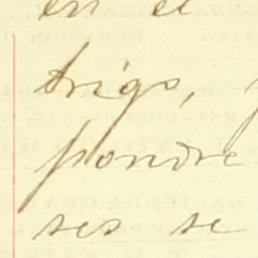 en el
trigo,
pondre
ses se